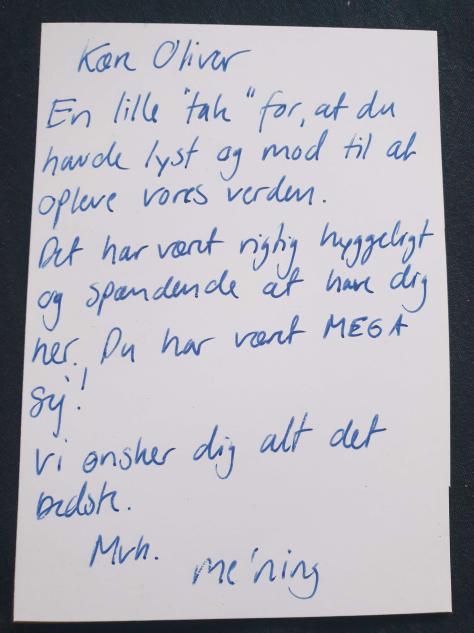 Kære Oliver
En lille "tak" for, at du
havde lyst og mod til at
opleve vores verden.
Det har været rigtig hyggeligt
og spændende at have dig
her. Du har været MEGA
sej!
Vi ønsker dig alt det
bedste.
Mvh. me'ning